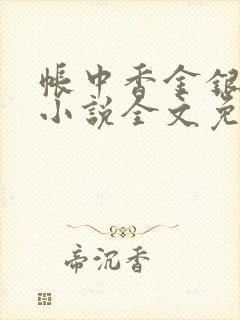 帳中香金銀
小說全文免
帝沉香